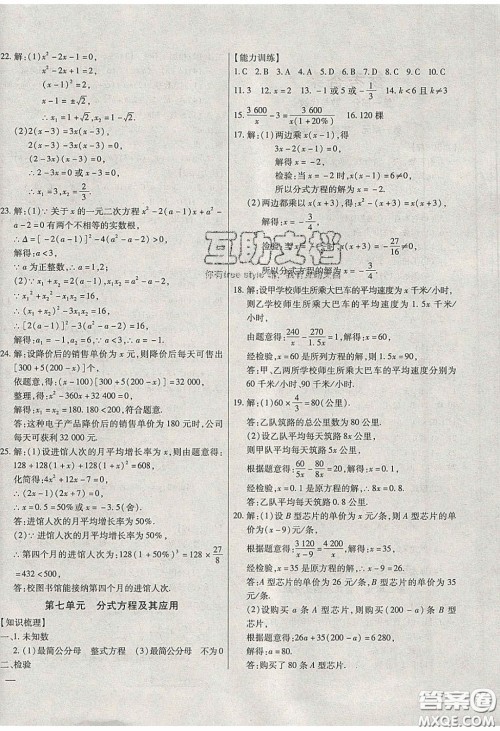 22. 解：(1)x²－2x－1＝0，
x²－2x＝1，
(x－1)²＝2，
x－1＝±√2，
∴x₁＝1＋√2，x₂＝1－√2.
(2)2(x－3)＝3x(x－3)，
2(x－3)－3x(x－3)＝0，
(x－3)(2－3x)＝0，
x－3＝0，2－3x＝0，
∴x₁＝3，x₂＝2/3.
23. 解：(1)∵关于x的一元二次方程x²－2(a－1)x＋a²－
a－2＝0有两个不相等的实数根，
∴Δ＝[－2(a－1)]²－4(a²－a－2)＞0，
解得：a＜3，
∵a为正整数，∴a＝1，2.
(2)∵x₁＋x₂＝2(a－1)，x₁x₂＝a²－a－2，
∵x₁²＋x₂²－x₁x₂＝16，
∴(x₁＋x₂)²－3x₁x₂＝16，
∴[2(a－1)]²－3(a²－a－2)＝16，
解得：a₁＝－1，a₂＝6，
∵a＜3，∴a＝－1.
24. 解：设降价后的销售单价为x元，则降价后每天可售出
[300＋5(200－x)]个，
依题意，得：(x－100)[300＋5(200－x)]＝32 000，
整理，得：x²－360x＋32 400＝0，
解得：x₁＝x₂＝180. 180＜200，符合题意.
答：这种电子产品降价后的销售单价为180元时，公司
每天可获利32 000元.
25. 解：(1)设进馆人次的月平均增长率为x，则由题意得：
128＋128(1＋x)＋128(1＋x)²＝608，
化简得：4x²＋12x－7＝0，
∴x＝0.5＝50%或x＝－3.5(舍).
答：进馆人次的月平均增长率为50%.
(2)∵进馆人次的月平均增长率为50%，
∴第四个月的进馆人次为：128(1＋50%)³＝128×27/8
＝432＜500，
答：校图书馆能接纳第四个月的进馆人次.
第七单元 分式方程及其应用
【知识梳理】
一、1. 未知数
2. (1)最简公分母 整式方程 (3)最简公分母 不为0
二、检验
【能力训练】
1. C 2. B 3. A 4. A 5. B 6. A 7. D 8. C 9. B 10. C
11. 3 12. x＝2 13. －1或5或－1/3 14. k＜6且k≠3
15. 3 600/x－3＝3 600/x(1＋20%) 16. 120棵
17. 解：(1)两边乘x(x－1)，得
3x－2(x－1)＝0，
解得x＝－2，
检验：当x＝－2时，x(x－1)≠0，
所以分式方程的解为x＝－2.
(2)两边都乘以x(x＋3)，得
解得：x＝－3/4，
检验：当x＝－3/4时，x(x＋3)＝－27/16≠0，
所以分式方程的解为x＝－3/4.
18. 解：设甲学校师生所乘大巴车的平均速度为x千米/小时，
则乙学校师生所乘大巴车的平均速度为1.5x千米/
小时.
由题意得：240/x－270/1.5x＝1，
解得：x＝60，
经检验，x＝60是所列方程的解，
答：甲、乙两所学校师生所乘大巴车的平均速度分别为
60千米/小时，90千米/小时.
19. 解：(1)60×4/3＝80(公里).
答：乙队筑路的总公里数为80公里.
(2)设乙队平均每天筑路8x公里，
则甲队平均每天筑路5x公里，
根据题意得：60/5x－80/8x＝20，
解得：x＝0.1，
经检验，x＝0.1是原方程的解，
∴8x＝0.8.
答：乙队平均每天筑路0.8公里.
20. 解：(1)设B型芯片的单价为x元/条，则A型芯片的单价为
(x－9)元/条，
根据题意得：3 120/(x－9)＝4 200/x，
解得：x＝35，
经检验，x＝35是原方程的解，
∴x－9＝26.
答：A型芯片的单价为26元/条，B型芯片的单价为
35元/条.
(2)设购买a条A型芯片，则购买(200－a)条B型
芯片，
根据题意得：26a＋35(200－a)＝6 280，
解得：a＝80.
答：购买了80条A型芯片.
互助文档
答案圈
MXQE.COM